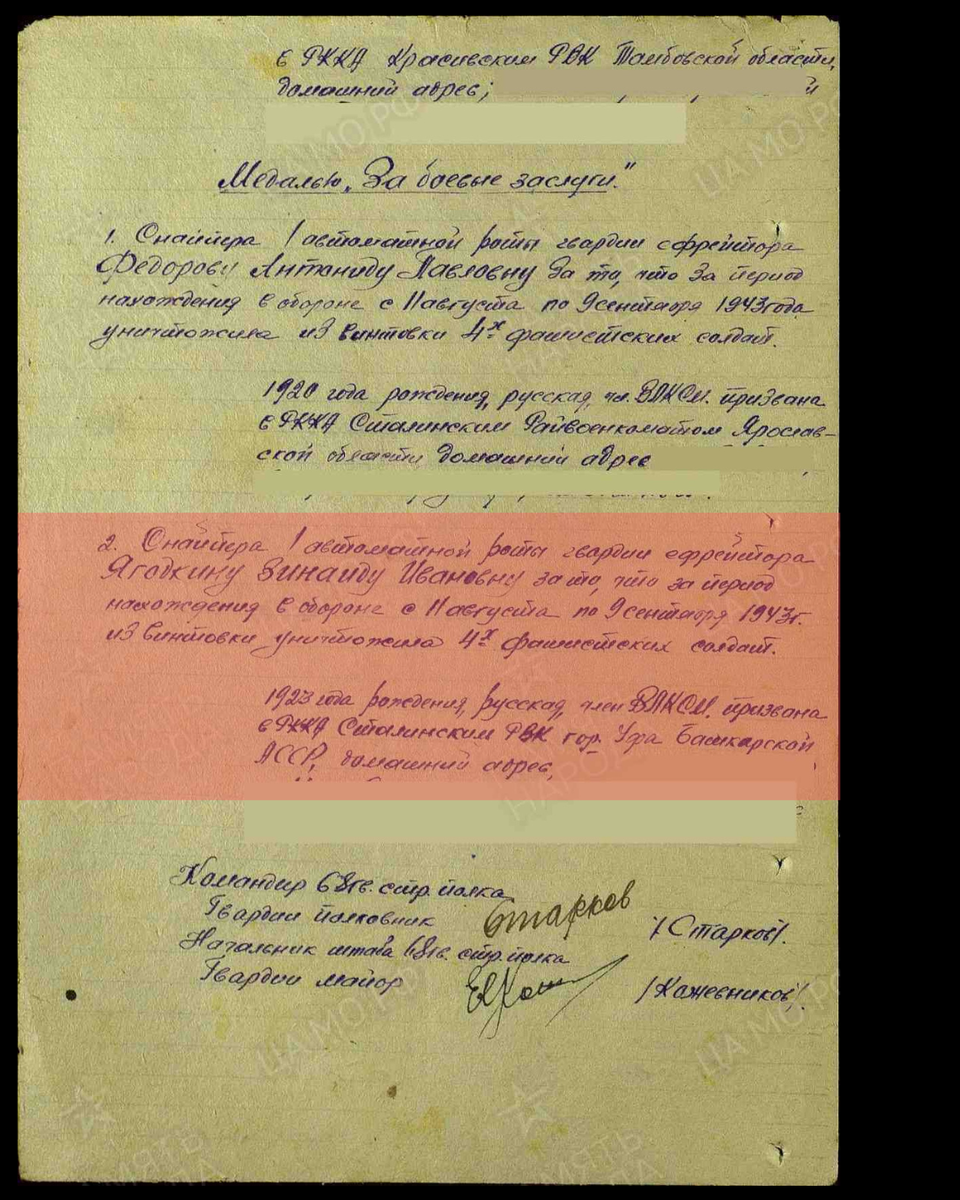 в РККА Красивским РВК Тамбовской области,
домашний адрес;
Медалью „За боевые заслуги."
1. Снайпера 1 автоматной роты гвардии ефрейтора
Федорову Антониду Павловну за то, что за период
нахождения в обороне с 11 августа по 9 сентября 1943 года
уничтожила из винтовки 4х фашистских солдат.
1920 года рождения, русская, чл. ВЛКСМ. призвана
в РККА Сталинским Райвоенкоматом Ярослав-
ской области домашний адрес
2. Снайпера 1 автоматной роты гвардии ефрейтора
Ягодкину Зинаиду Ивановну за то, что за период
нахождения в обороне с 11 августа по 9 сентября 1943 г.
из винтовки уничтожила 4х фашистских солдат.
1923 года рождения, русская, член ВЛКСМ. призвана
в РККА Сталинским РВК гор. Уфа Башкарской
АССР, домашний адрес,
Командир 68 гв. стр. полка
Гвардии полковник Старков /Старков/.
Начальник штаба 68 гв. стр. полка
Гвардии майор /Кожевников/.
ЦА МО РФ
ЦА МО РФ
ЦА МО РФ
ЦА МО РФ